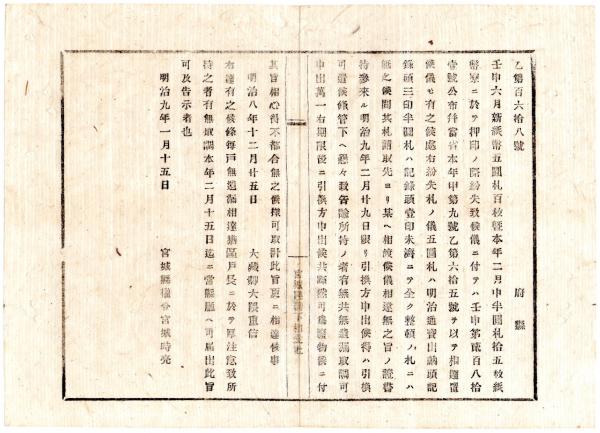 乙第百六拾八號
府縣
壬申六月新紙幣五圓札百枚並本年二月中半圓札拾五枚紙
幣寮ニ於テ押印ノ際紛失致候儀ニ付テハ壬申第貳百八拾
壹號公布並當省本年甲第九號乙第六拾五號ヲ以テ相達置
候儀モ有之候處右紛失札ノ儀五圓札ハ明治通寶出納頭記
錄頭三印半圓札ハ記錄頭壹印未濟ニテ全ク整頓ノ札ニハ
無之候間其札請取先ヨリ某ヘ相渡候儀相違無之旨ノ證書
持參來ル明治九年二月廿九日限リ引換方申出候得ハ引換
可遣候條管下ヘ懇々致告諭所持ノ者有無共無遺漏取調可
申出萬一右期限後ニ引換方申出候共詮議可爲廢物候ニ付
其旨相心得不都合無之候樣可取計此旨更ニ相達候事
明治八年十二月廿五日
大藏卿大隈重信
布達有之候條每戶無遺漏相達區戶長ニ於テ厚注意致所
持之者有無取調本年二月十五日迄ニ當縣廳ヘ可屆出此旨
可及告示者也
明治九年一月十五日
宮城縣權令宮城時亮